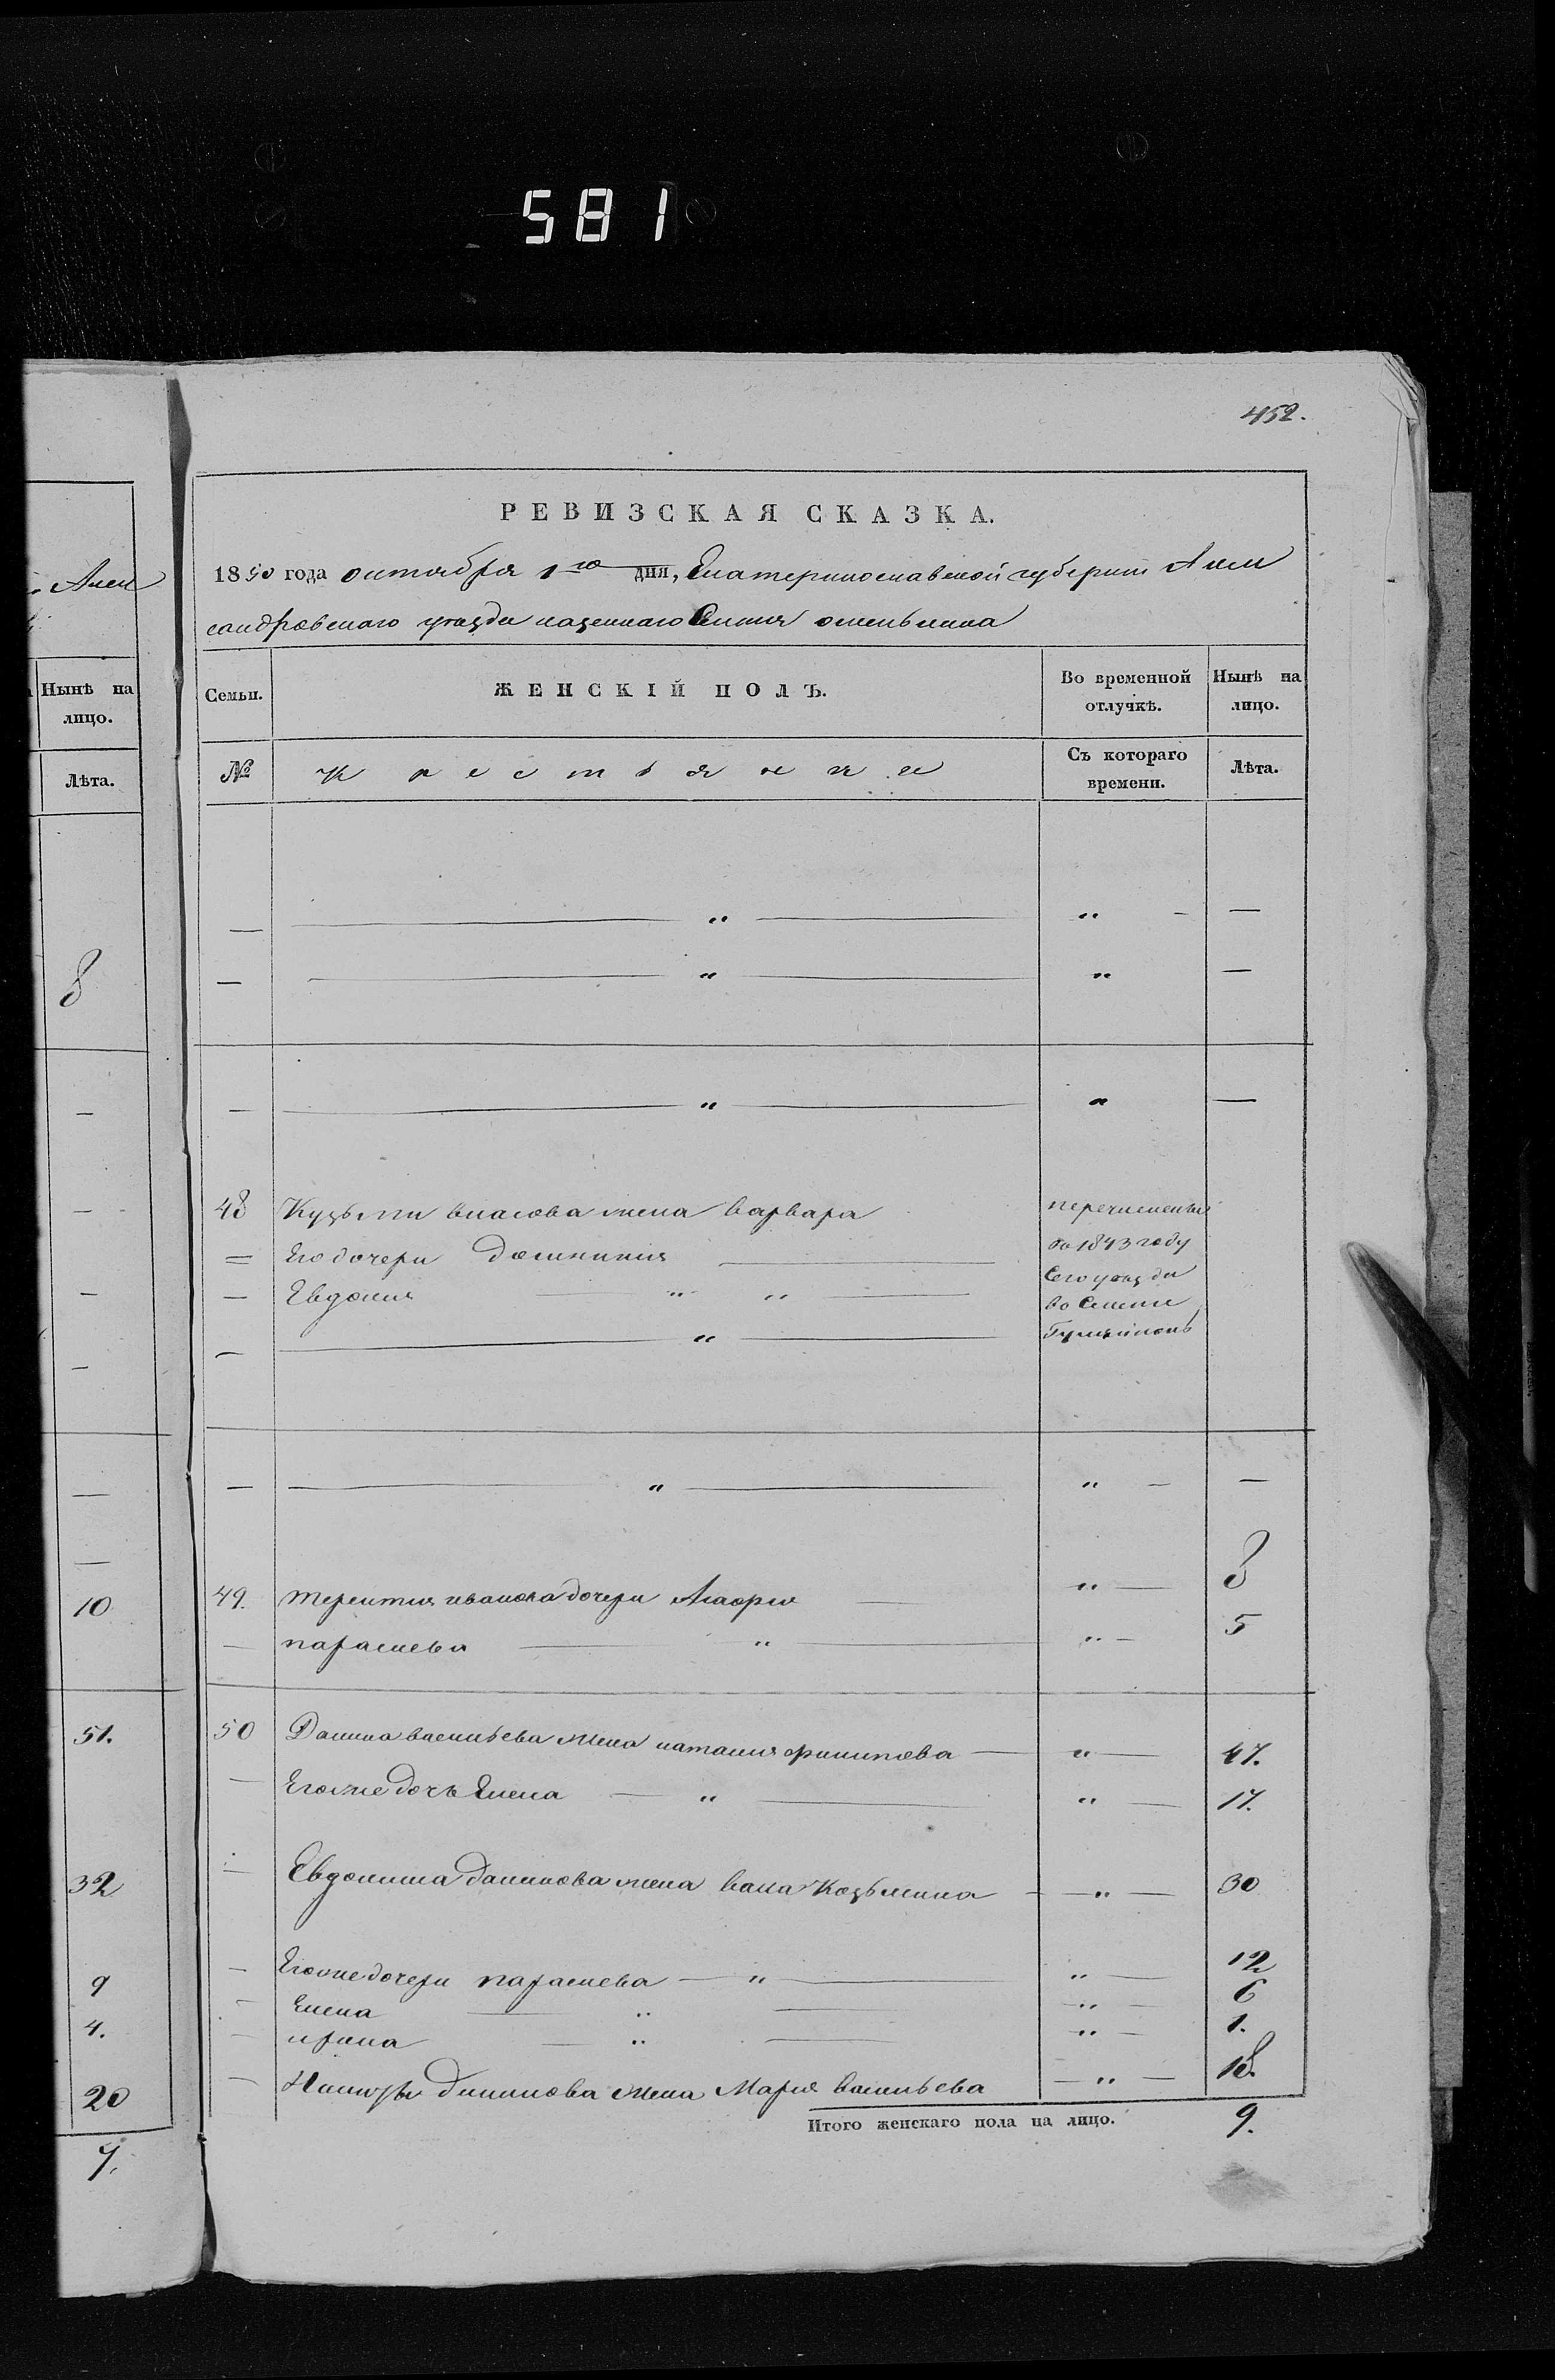 581
452.
Алек
Нынѣ на
лицо.
Лѣта.
8
10
51.
32
9
4.
20
7.
РЕВИЗСКАЯ СКАЗКА.
1850 года октября 1го дня, Екатеринославской губернии Алек
сандровскаго уезда казеннаго Селения
Семьи.
ЖЕНСКІЙ ПОЛЪ.
Во временной
отлучкѣ.
Нынѣ на
лицо.
№
Крестьянке
Съ котораго
времени.
Лѣта.
48 Кузьмы власова жена варвара перечислены
Его дочери домникия во 1843 году
Евдокия " " сего уезда
во Селение
49. терентия иванова дочери " 8
парасковья " " 5
50 Данила васильева жена наталия филипова " 47.
Его же дочь Елена " " 17.
Евдокима данилова жена Козьмина " 30
Его же дочери парасковья " " 12
Елена " " 6
ирина " " 1.
данилова жена Мария васильева " 18.
Итого женскаго пола на лицо. 9.